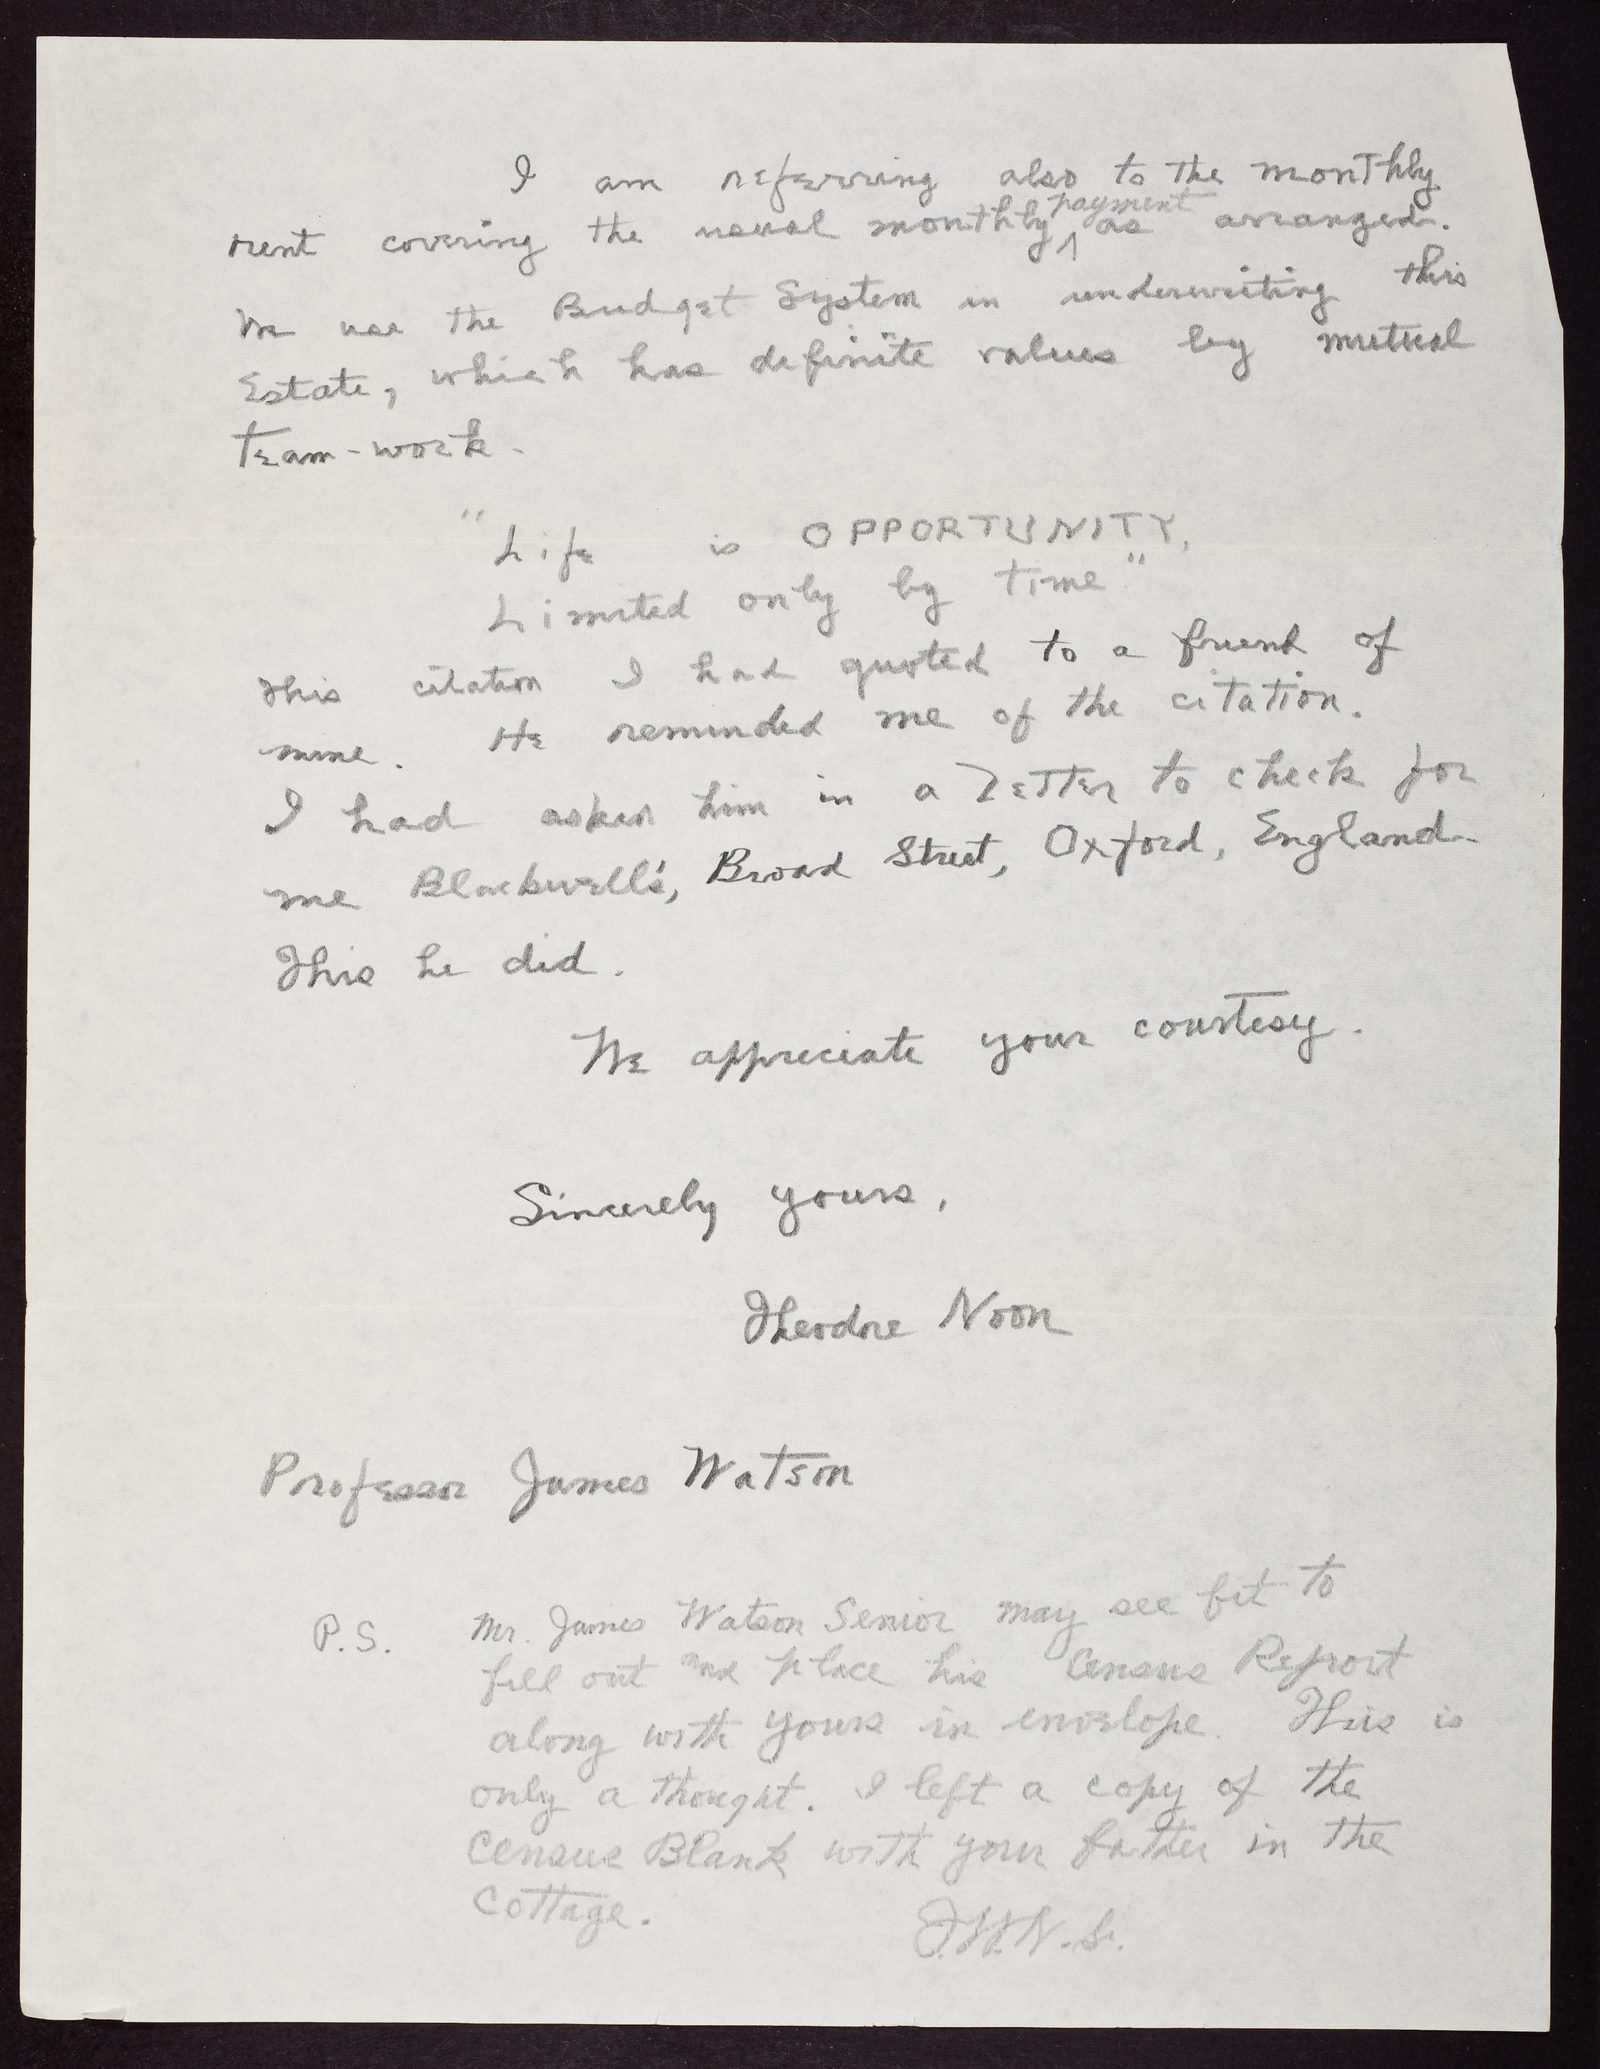 I am referring also to the monthly
rent covering the usual monthly payment as arranged.
We use the Budget System in underwriting this
Estate, which has definite values by mutual
team-work.
"Life is OPPORTUNITY,
Limited only by time"
This citation I had quoted to a friend of
mine. He reminded me of the citation.
I had asked him in a letter to check for
me Blackwell's, Broad Street, Oxford, England.
This he did.
We appreciate your courtesy.
Sincerely yours,
Theodore Noon
Professor James Watson
P.S. Mr. James Watson Senior may see fit to
fill out and place his Census Report
along with yours in envelope. This is
only a thought. I left a copy of the
Census Blank with your father in the
Cottage.
T.W.N. Sr.